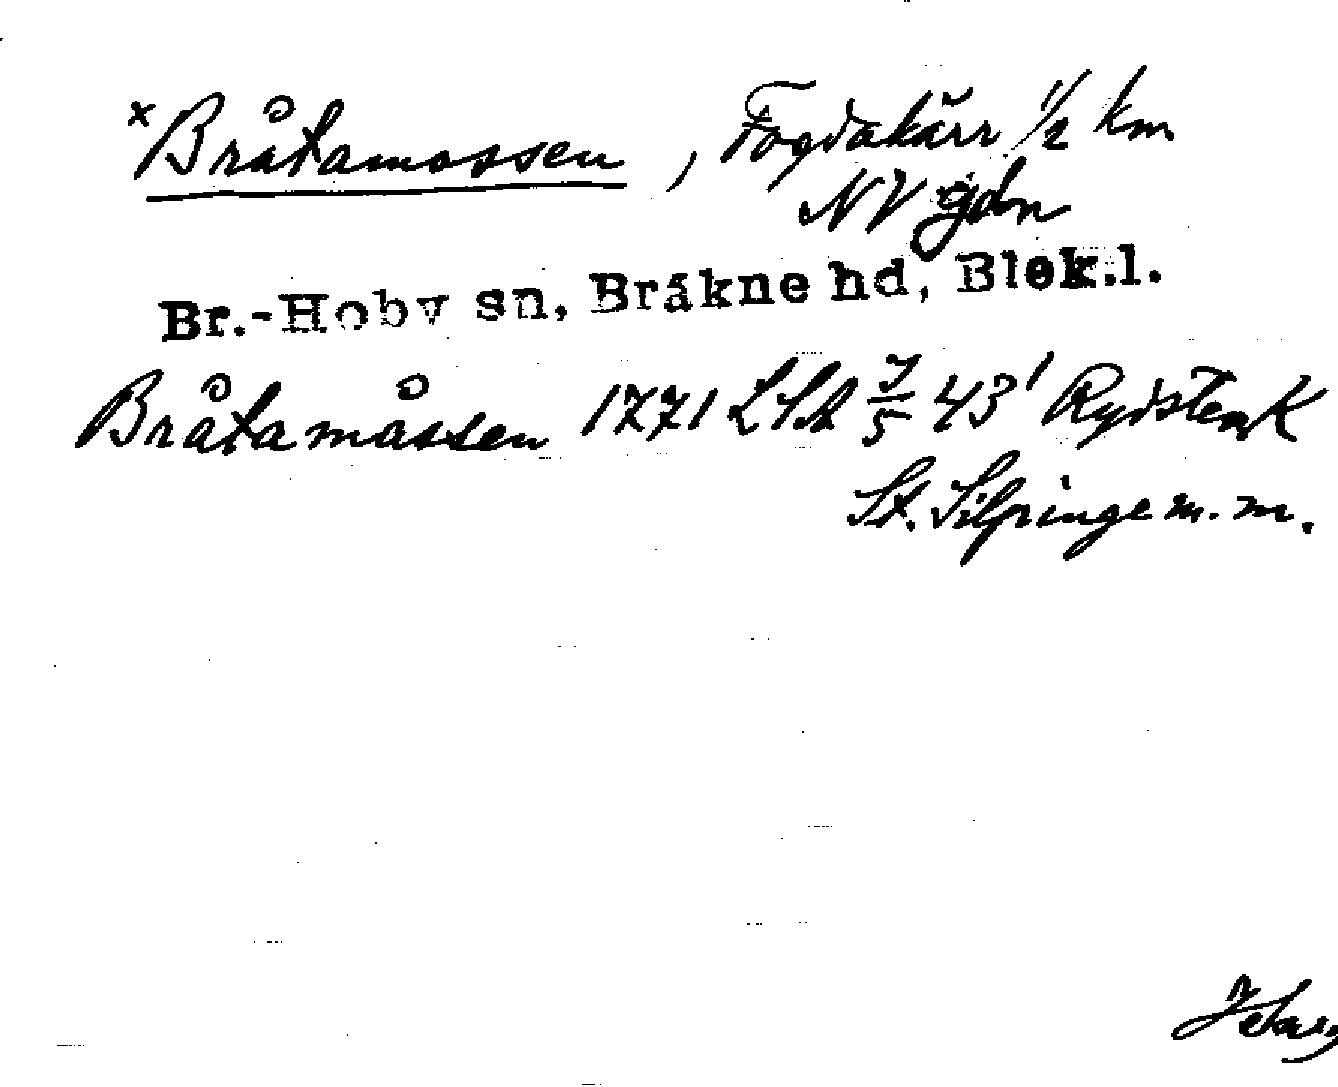 x Bråtamossen, Fogdakärr 1/2 km
NV gdn
Br.-Hoby sn, Bräkne hd, Blek.l.
Bråtamåssen 1771 LSA 7/5 43' Rydsten K
St. Silpinge m.m.